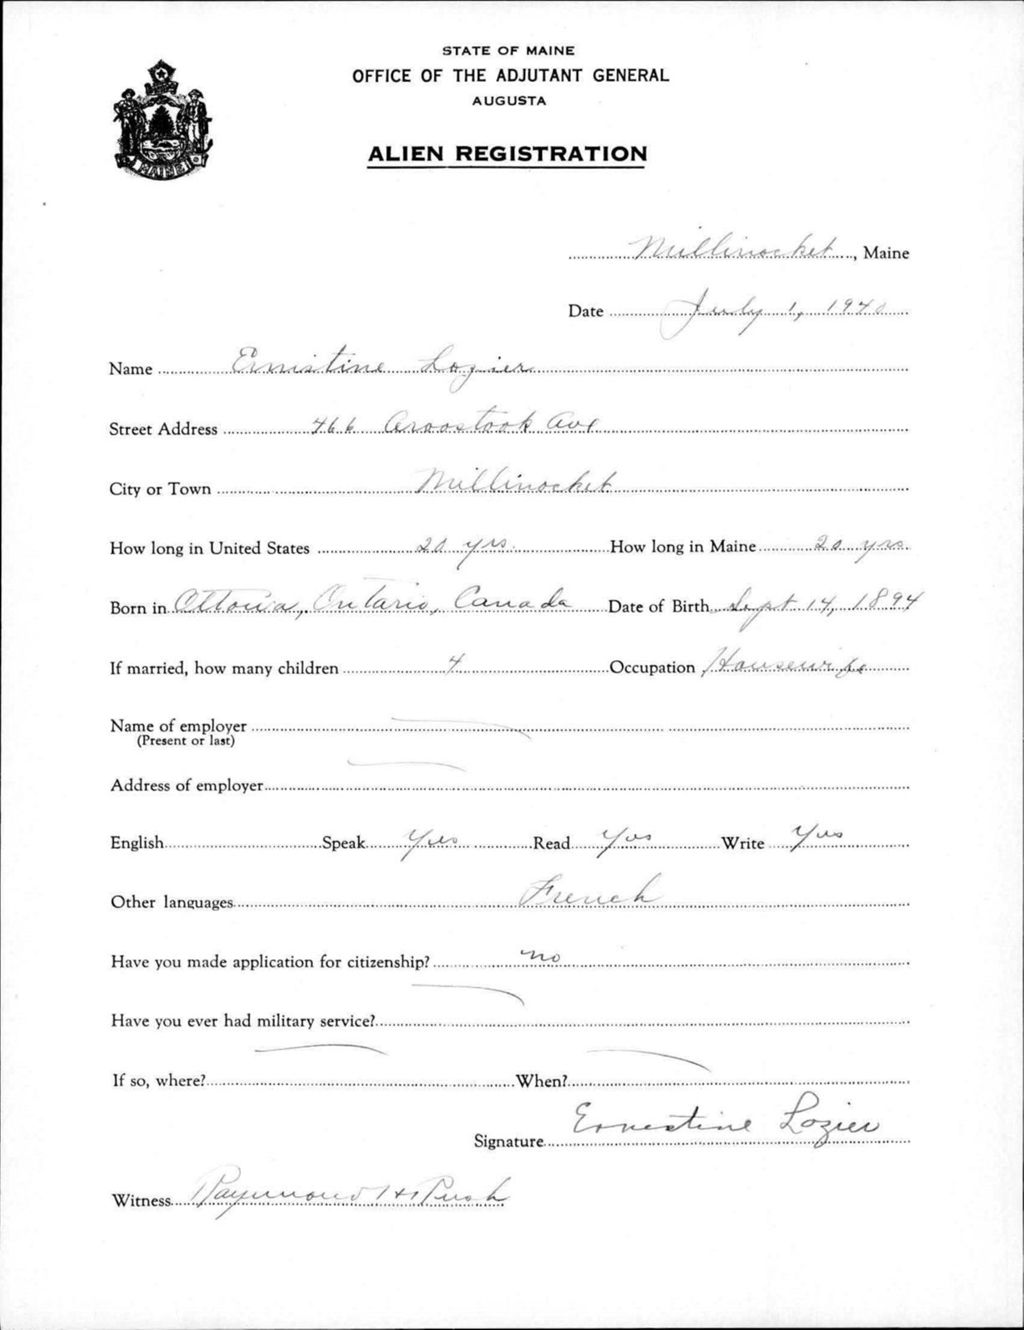 STATE OF MAINE
OFFICE OF THE ADJUTANT GENERAL
AUGUSTA
ALIEN REGISTRATION
MAINE
Millinocket, Maine
Date July 1, 1940
Name Ernistine Lozier
Street Address 466 Aroostook Ave
City or Town Millinocket
How long in United States 20 yrs. How long in Maine 20 yrs.
Born in Ottowa, Ontario, Canada Date of Birth Sept 14, 1894
If married, how many children 4 Occupation Housewife
Name of employer
(Present or last)
Address of employer
English Speak Yes Read Yes Write Yes
Other languages French
Have you made application for citizenship? no
Have you ever had military service?
If so, where? When?
Signature Ernestine Lozier
Witness Raymond H Rush